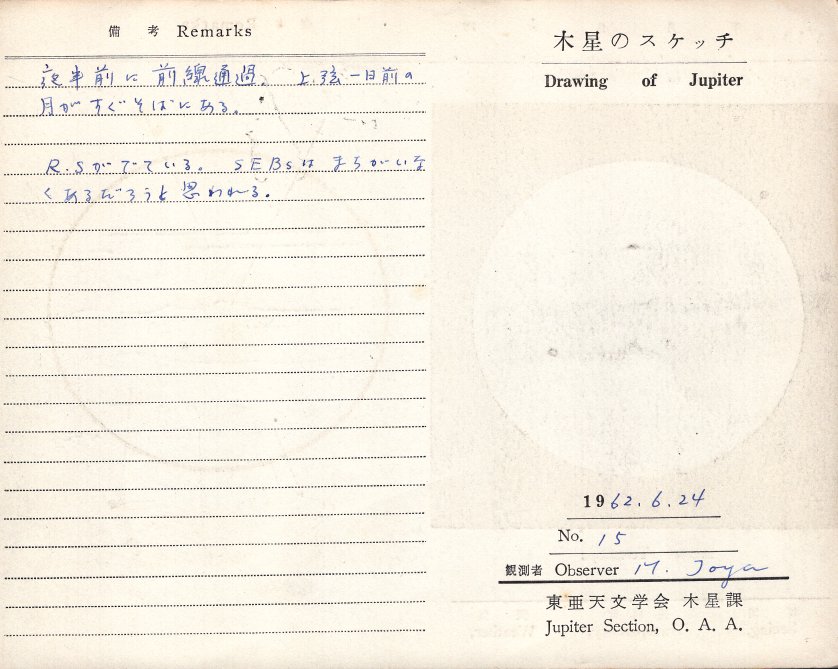 備考 Remarks
夜半前に前線通過。上弦一日前の
月がすぐそばにある。
R.Sがでている。SEBsはまちがいな
くあるだろうと思われる。
木星のスケッチ
Drawing of Jupiter
1962.6.24
No. 15
観測者 Observer M. Joya
東亜天文学会 木星課
Jupiter Section, O. A. A.